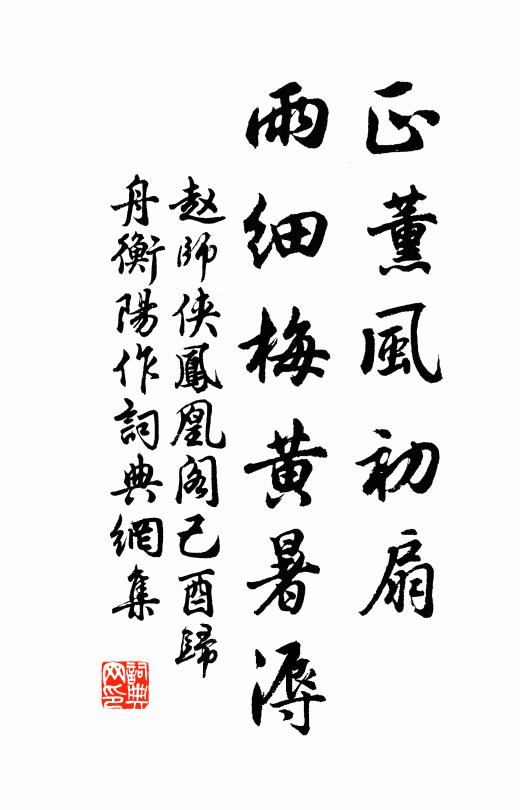 正薰風初扇
雨細梅黄暑溽
赵師侠鳳凰阁己酉歸
舟衡陽作詞典網集
詞典网印